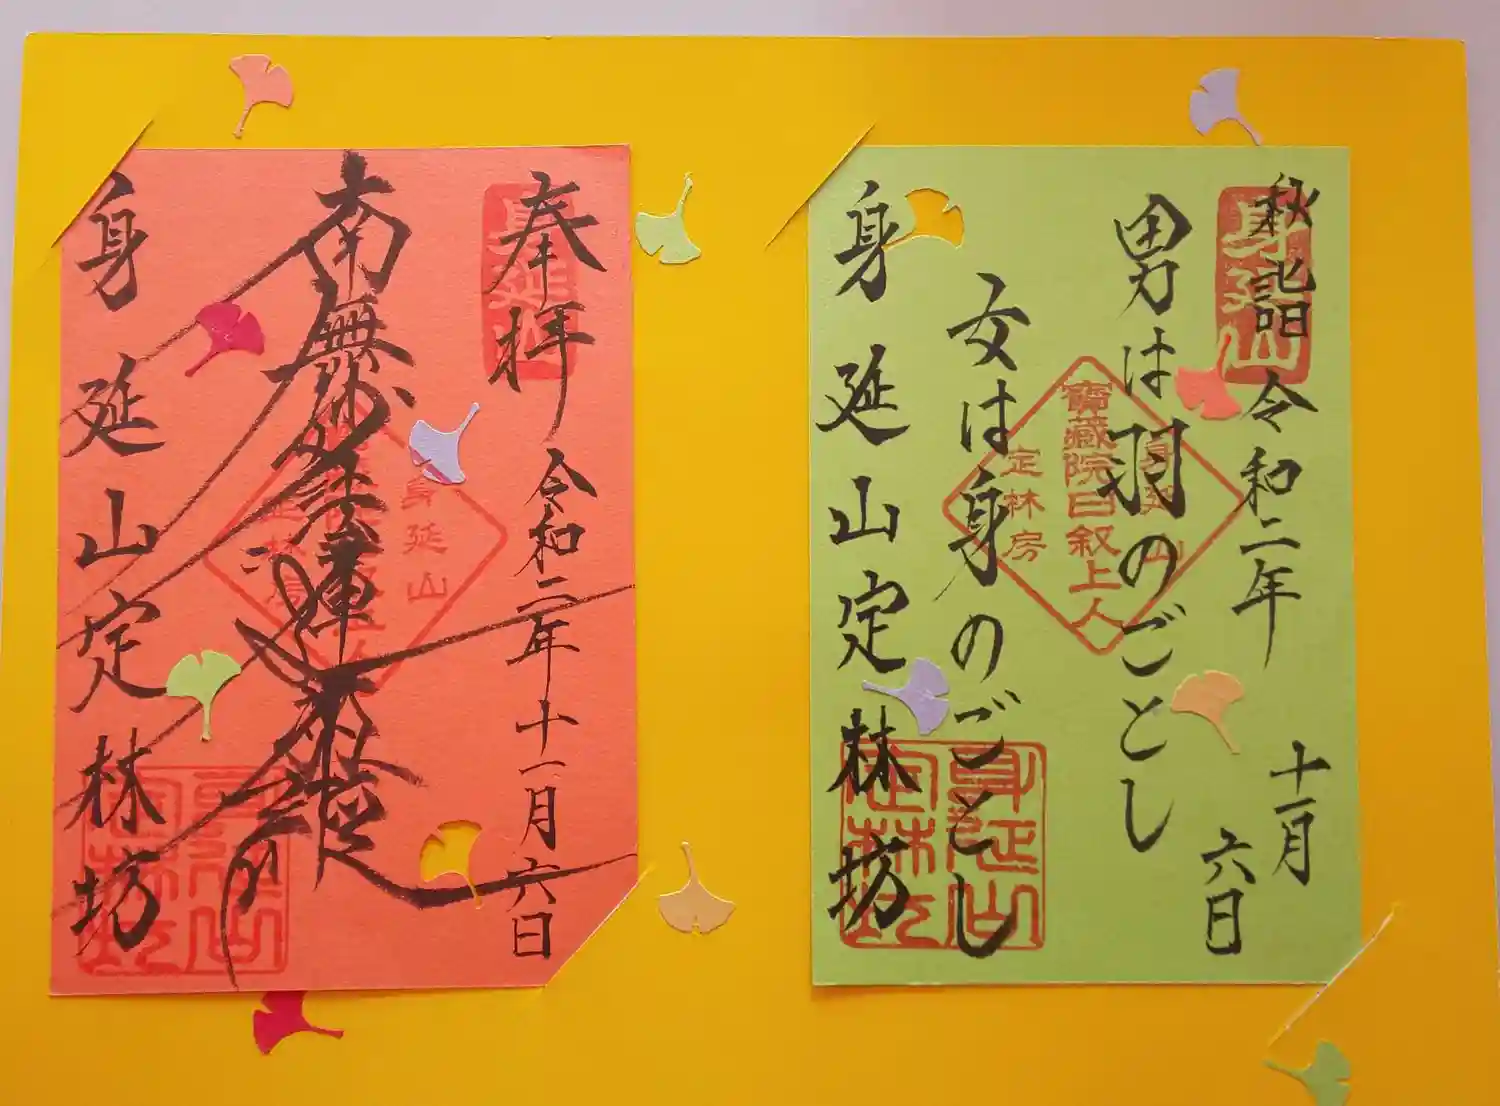 秋詣 令和二年 十一月
六日
男は羽のごとし
女は身のごとし
身延山定林坊
身延山
寶蔵院日叙上人
身延山
定林房
身延山
定林坊
奉拝 令和二年十一月六日
南無妙法蓮華経
身延山定林坊
身延山
身延山
身延山
定林坊